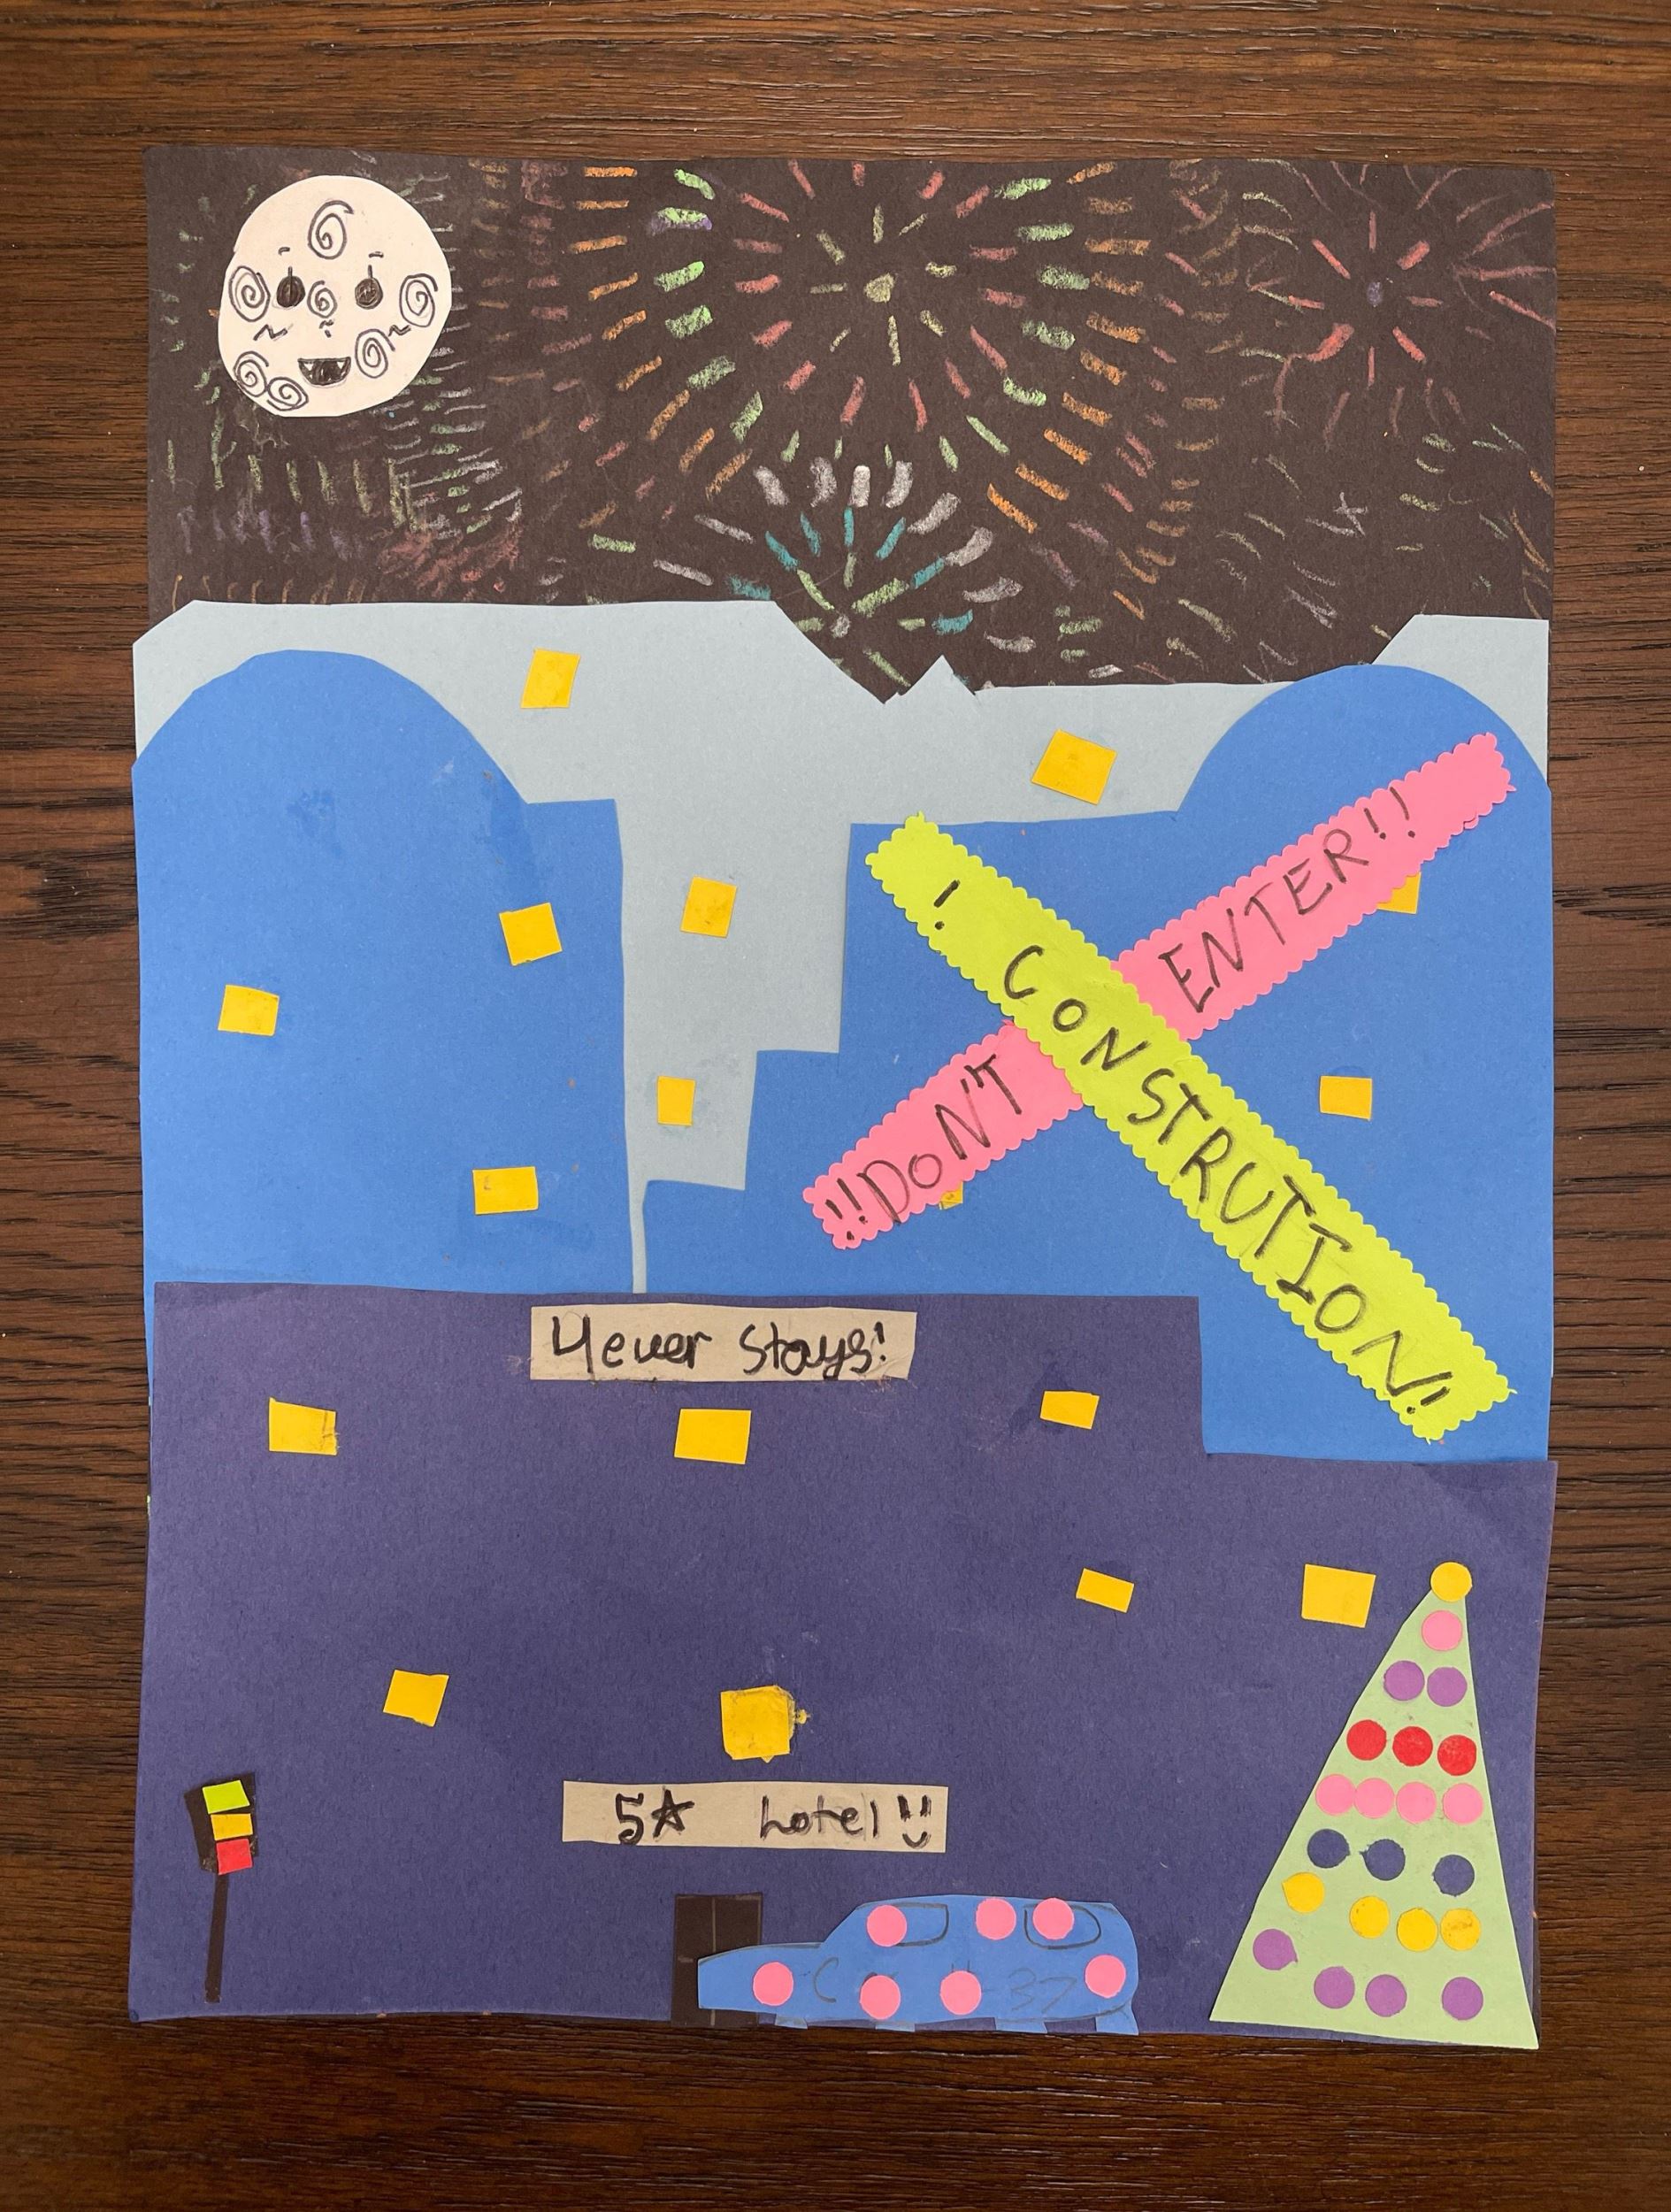 !!DON'T ENTER!!
! CONSTRUTION!!
4ever stays!
5☆ hotel
37